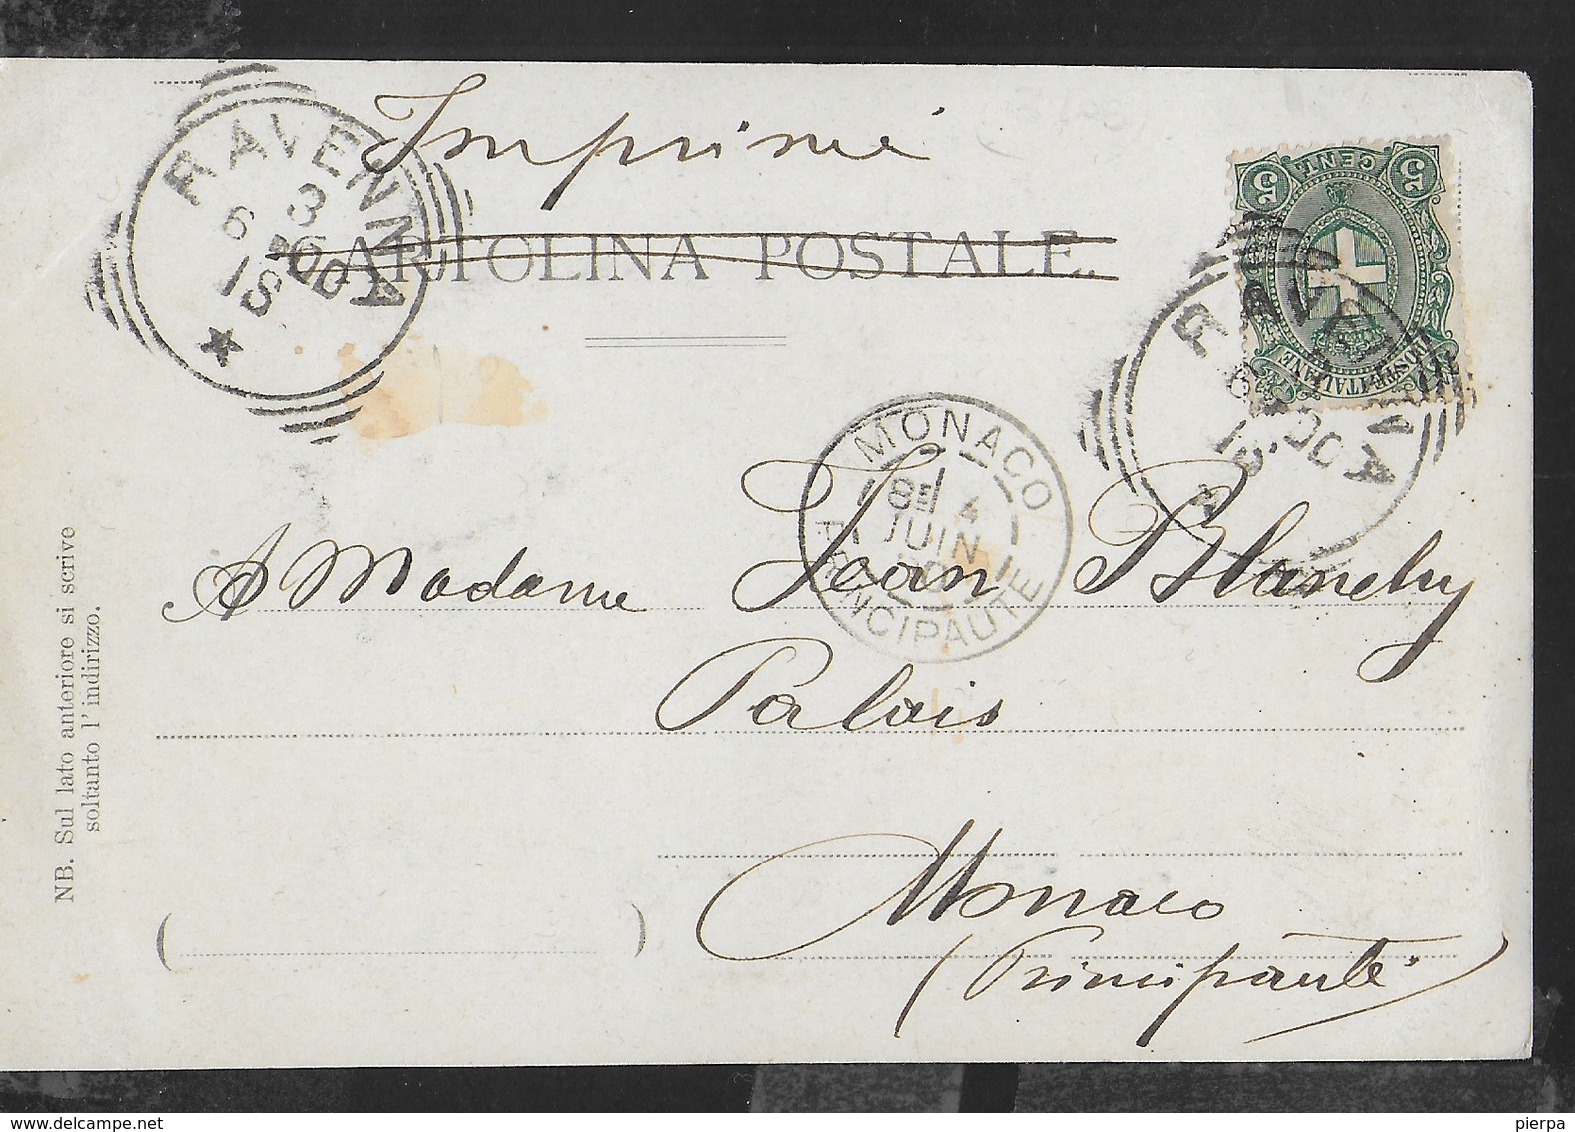 Imprimé
CARTOLINA POSTALE.
RAVENNA
3
6
00
1S
5 5
CENT.
POSTE ITALIANE
RAVENNA
MONACO
8E 4
JUIN
PRINCIPAUTE
A Madame Jean Blanchy
Palais
Monaco
(Principauté)
NB. Sul lato anteriore si scrive
soltanto l'indirizzo.
( )
pierpa